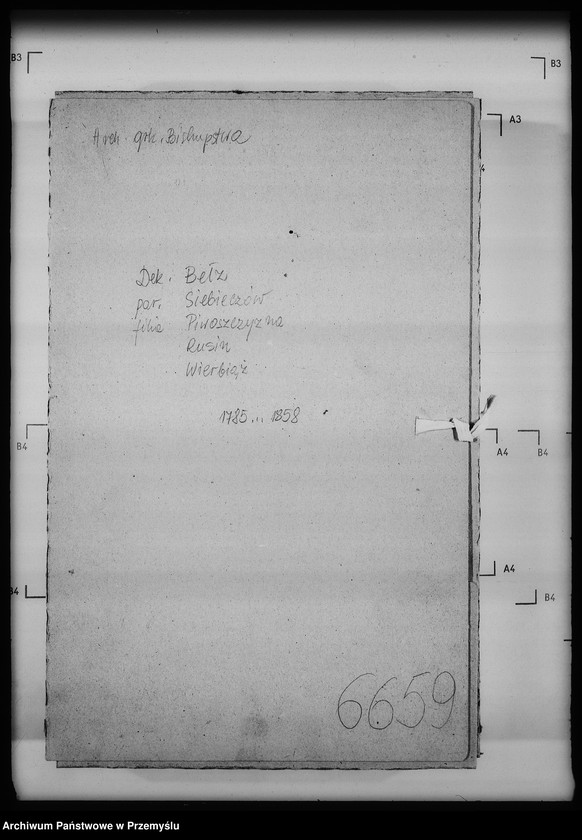 B3
B3
A3
Arch. grk. Biskupstwa
Dek. Bełz
par. Siebieczów
filia Piwoszczyzna
Rusin
Wierbiąż
1785... 1858
B4
A4
B4
A4
B4
B4
6659
Archiwum Państwowe w Przemyślu